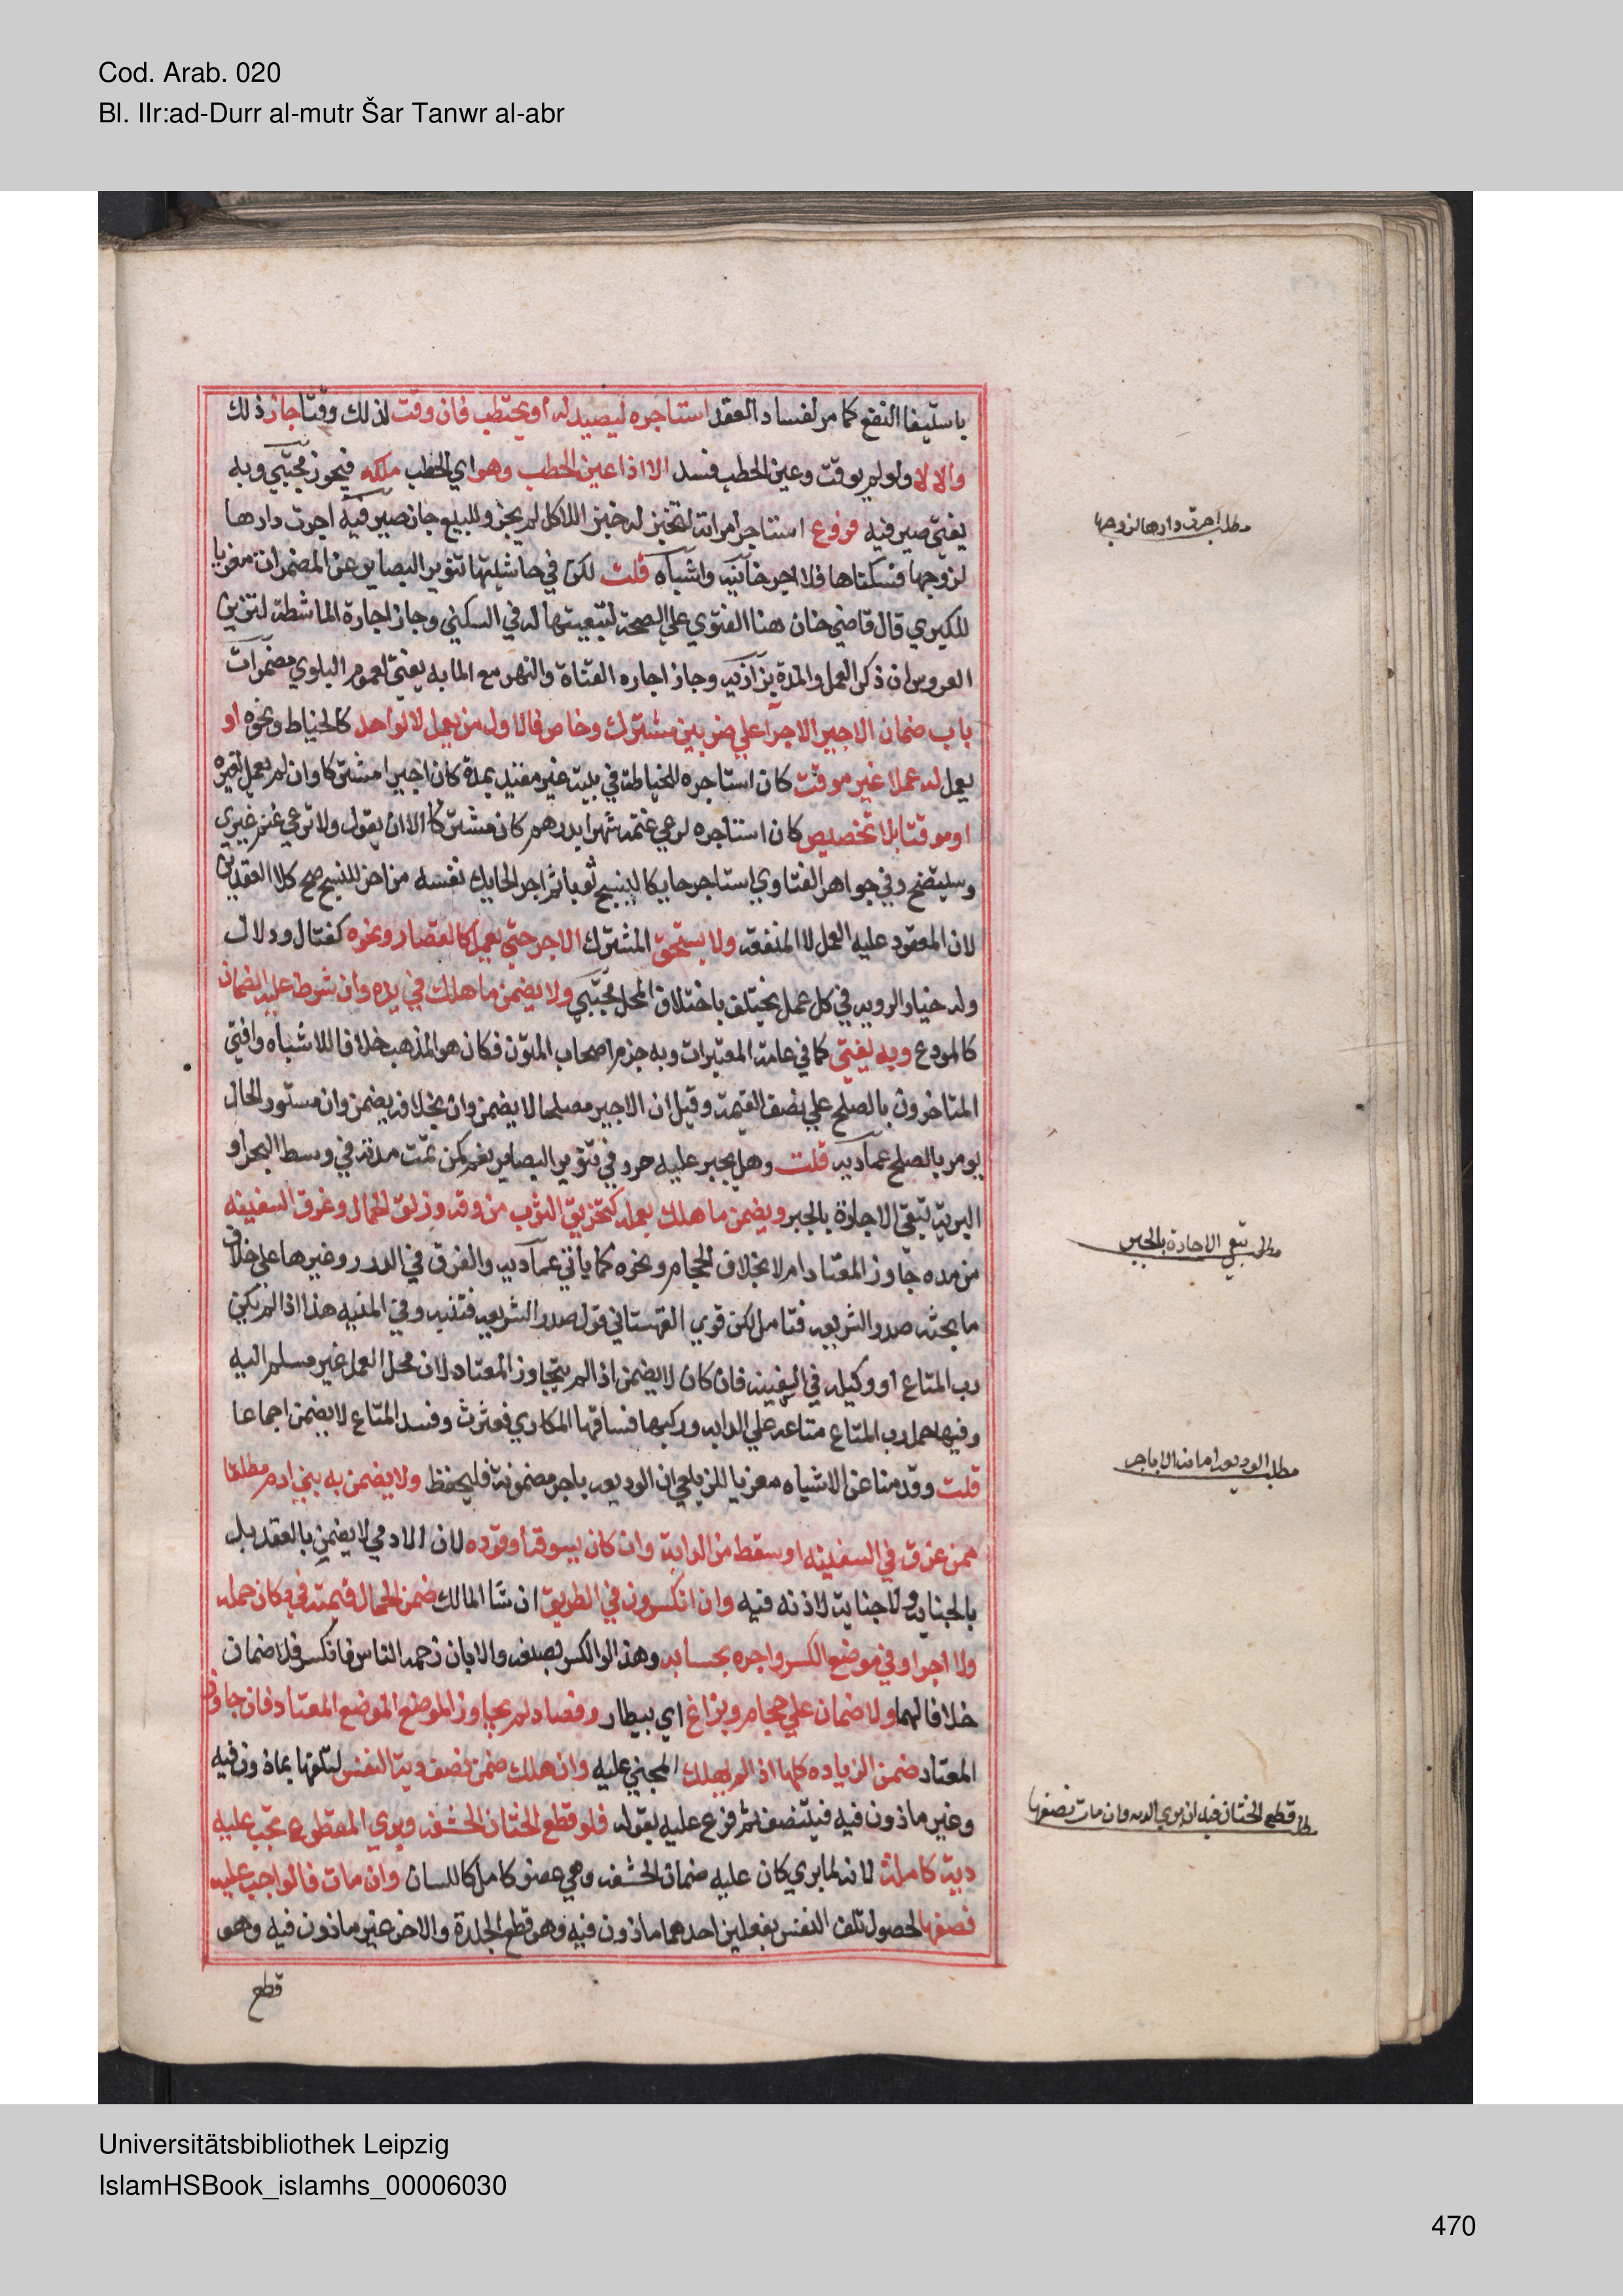 Cod. Arab. 020
Bl. IIr:ad-Durr al-mutr Šar Tanwr al-abr
باستيفا النفع كما مر لفساد العقد استاجره ليصيد له او يحتطب فان وقت لذلك وقتا جاز ذلك
والا لا ولو لم يوقت وعين الحطب فسد الا اذا عين الحطب وهو اي الحطب ملكه فيجوز مجتبي وبه
يفتي صيرفيه فروع استاجر امراته لتخبز له خبز اللاكل لم يجز وللبيع جاز صيرفيه اجرت دارها
لزوجها فسكناها فلا اجر خانيه واشباه قلت لكن في حاشيتها تنوير البصاير عن المضمرات معزيا
للكبري قال قاضي خان هنا الفتوي علي الصحة لتبعيتها له في السكني وجاز اجارة الماشطة لتزين
العروس ان ذكر العمل والمدة بزازيه وجاز اجاره القناة والنهر مع الما به يفتي لعموم البلوي مضمرات
باب ضمان الاجير الاجرا علي ضربين مشترك وخاص فالاول من يعمل لا لواحد كالخياط ونحوه او
يعمل له عملا غير موقت كان استاجره للخياطة في بيته غير مقيد بمدة كان اجيرا مشتركا وان لم يعمل لغيره
او موقتا بلا تخصيص كان استاجره لرعي غنمه شهرا بدرهم كان مشتركا الا ان يقول ولا ترعي غنم غيري
وسيتضح وفي جواهر الفتاوي استاجر حايكا لينسج ثوبا ثم اجر الحايك نفسه من اخر للنسج صح كلا العقدين
لان المعقود عليه العمل لا المنفعة ولا يستحق المشترك الاجر حتي يعمل كالقصار ونحوه كفتال ودلال
وله خيار الرويه في كل عمل يختلف باختلاف المحل مجتبي ولا يضمن ما هلك في يده وان شرط عليه الضمان
كالمودع وبه يفتي كما في عامة المعتبرات وبه جزم اصحاب المتون فكان هو المذهب خلافا للاشباه وافتي
المتاخرون بالصلح علي نصف القيمة وقيل ان الاجير مصلحا لا يضمن وان بخلافه يضمن وان مستور الحال
يومر بالصلح عماديه قلت وهل يجبر عليه حرر في تنوير البصاير نعم كمن تمت مدته في وسط البحر او
البرية تبقي الاجارة بالجبر ويضمن ما هلك بعمله كتخريق الثوب من دقه وزلق الحمال وغرق السفينه
من مده جاوز المعتاد ام لا بخلاف الحجام ونحوه كما ياتي عماديه والفرق في الدرر وغيرها علي خلاف
ما بحثه صدر الشريعه فتامل لكن قوي القهستاني قول صدر الشريعه فتنبه وفي المنيه هذا اذا لم يكن
رب المتاع او وكيله في السفينه فان كان لا يضمن اذا لم يتجاوز المعتاد لان محل العمل غير مسلم اليه
وفيها حمل رب المتاع متاعه علي الدابه وركبها فساقها المكاري فعثرت وفسد المتاع لا يضمن اجماعا
قلت وقدمنا عن الاشباه معزيا للزيلعي ان الوديعه باجر مضمونة فليحفظ ولا يضمن به بني ادم مطلقا
ممن غرق في السفينه او سقط من الدابة وان كان بسوقه او قوده لان الادمي لا يضمن بالعقد بل
بالجنايه ولا جناية لاذنه فيه وان انكسر دن في الطريق ان شا المالك ضمن الحمال قيمته في مكان حمله
ولا اجر او في موضع الكسر واجره بحسابه وهذا لو الكسر بصنعه والا بان زحمه الناس فانكسر فلا ضمان
خلافا لهما ولا ضمان علي حجام وبزاغ اي بيطار وفصاد لم يجاوز الموضع الموضع المعتاد فان جاوز
المعتاد ضمن الزياده كلها اذا لم يهلك المجني عليه وان هلك ضمن نصف دية النفس لتلفها بماذون فيه
وغير ماذون فيه فيتنصف ثم فرع عليه بقوله فلو قطع الختان الحشفه وبري المقطوع تجب عليه
دية كاملة لانه لما بري كان عليه ضمان الحشفه وهي عضو كامل كاللسان وان مات فالواجب عليه
نصفها لحصول تلف النفس بفعلين احدهما ماذون فيه وهو قطع الجلدة والاخر غير ماذون فيه وهو
قطع
مطلب اجرت دارها لزوجها
مطلب تبقي الاجارة بالجبر
مطلب الوديعه امانه الا باجر
مطلب قطع الختان فيه ان بري الديه وان مات نصفها
Universitätsbibliothek Leipzig
IslamHSBook_islamhs_00006030
470